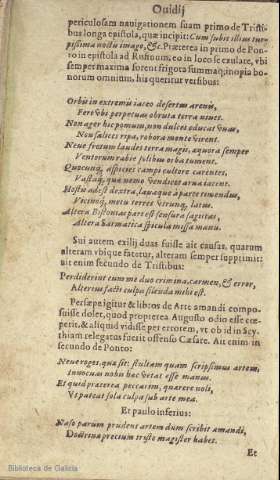 Ouidij
periculosam nauigationem suam primo de Tristi-
bus longa epistola, quæ incipit: Cum subit illius tur-
pissima noctis imago, &c. Præterea in primo de Pon-
to in epistola ad Rufinum, eo in loco se exulare, vbi
semper maxima forent frigora summaq; inopia bo-
norum omnium, his queritur versibus:
Orbis in extremi iaceo desertus arenis,
Fert vbi perpetuas obruta terra niues.
Non ager hic pomum, non dulces educat vuas,
Non salices ripa, robora monte virent.
Neue fretum laudes terra magis, æquora semper
Ventorum rabie solibus orba tument.
Quocunq; aspicies campi cultore carentes,
Vastaq; quæ nemo vendicet arua iacent.
Hostis adest dextra, læuaque à parte timendus,
Vicinoq; metu terret vtrunq; latus.
Altera Bistonias pars est sensura sarissas,
Altera Sarmatica spicula missa manu.
Sui autem exilij duas fuisse ait causas, quarum
alteram vbique fatetur, alteram semper supprimit:
ait enim secundo de Tristibus:
Perdiderint cum me duo crimina, carmen, & error,
Alterius facti culpa silenda mihi est.
Persæpe igitur & libros de Arte amandi compo-
suisse dolet, quod propterea Augusto odio esse cœ-
perit, & aliquid vidisse per errorem, vt ob id in Scy-
thiam relegatus fuerit offenso Cæsare. Ait enim in
secundo de Ponto:
Neue roges, quæ sit: stultam quam scripsimus artem,
Innocuas nobis hæc vetat esse manus.
Et quid præterea peccarim, quærere noli,
Vt pateat sola culpa sub arte mea.
Et paulo inferius:
Naso parum prudens artem dum scribit amandi,
Doctrinæ precium triste magister habet.
Et
Biblioteca de Galicia